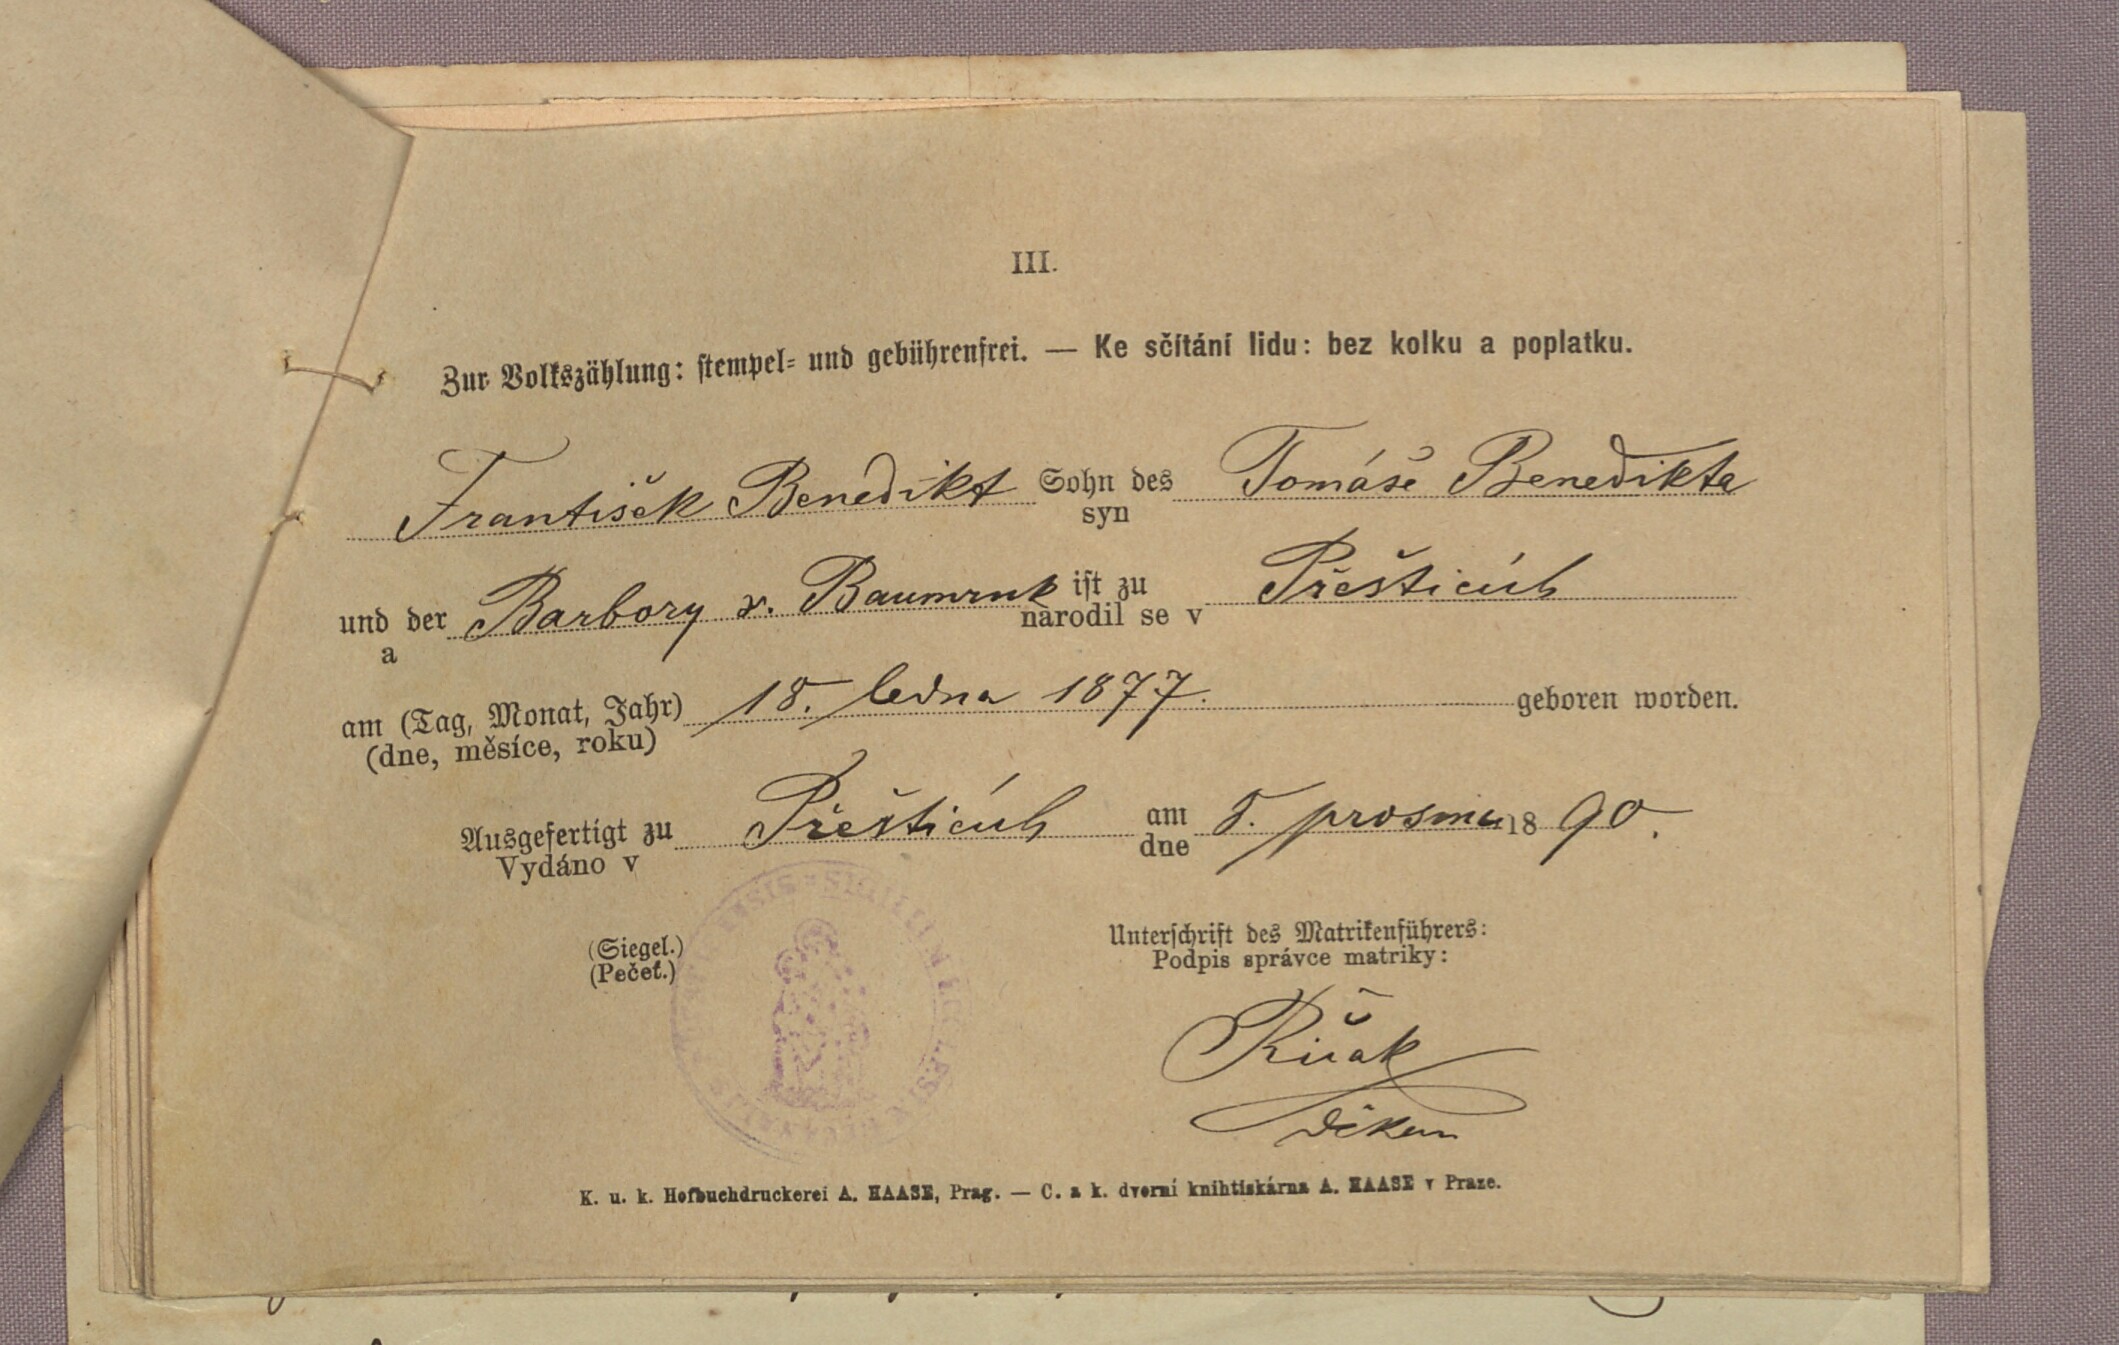 III.
Zur Volkszählung: stempel- und gebührenfrei. — Ke sčítání lidu: bez kolku a poplatku.
František Benedikt Sohn des Tomáše Benedikta
syn
und der Barbory r. Baumruk ist zu Přešticích
a národil se v
am (Tag, Monat, Jahr) 18. ledna 1877. geboren worden.
(dne, měsíce, roku)
Ausgefertigt zu Přešticích am 5. prosince 1890.
Vydáno v dne
(Siegel.) Unterschrift des Matrikenführers:
(Pečeť.) Podpis správce matriky:
děkan
K. u. k. Hofbuchdruckerei A. HAASE, Prag. — C. a k. dvorní knihtiskárna A. HAASE v Praze.